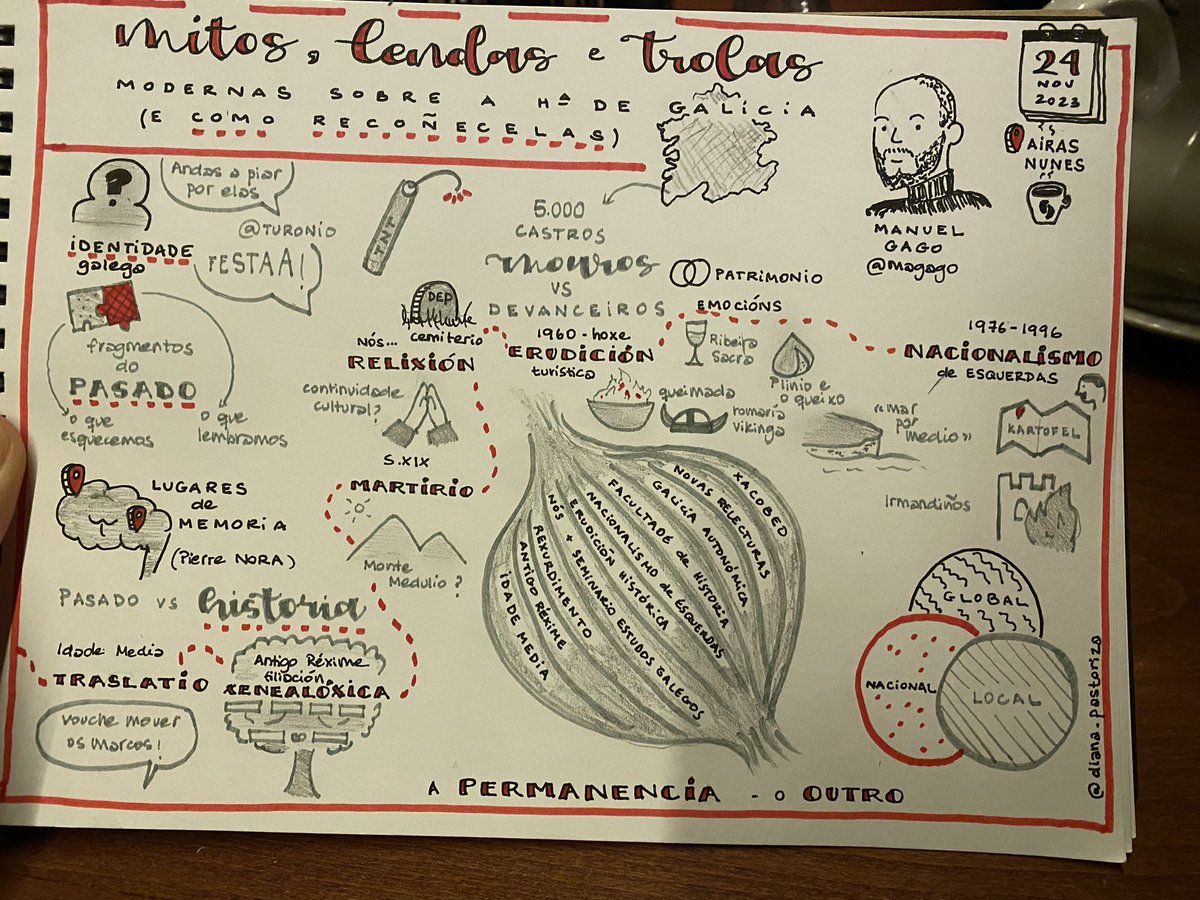 mitos, lendas e trolas
MODERNAS SOBRE A Hª DE GALICIA
(E COMO RECOÑECELAS)
24
NOV
2023
AIRAS
NUNES
MANUEL
GAGO
@magago
?
IDENTIDADE
galega
Andas a piar
por elas
@TURONIO
FESTAA!
TNT
5.000
CASTROS
mouros
VS
DEVANCEIROS
PATRIMONIO
EMOCIÓNS
fragmentos
do
PASADO
o que
esquecemos
o que
lembramos
LUGARES
de
MEMORIA
(Pierre NORA)
PASADO VS historia
Idade Media
TRASLATIO
Vouche mover
os marcos!
Antigo Réxime
filiación
XENEALÓXICA
S.XIX
MARTIRIO
Monte
Medulio?
DEP
cemiterio
NÓS...
RELIXIÓN
continuidade
cultural?
1960-hoxe
ERUDICIÓN
turística
Ribeira
Sacra
queimada
Plinio e
o queixo
romaría
vikinga
1976-1996
NACIONALISMO
de ESQUERDAS
"mar
por
medio"
KARTOFEL
Irmandiños
XACOBEO
NOVAS RELECTURAS
GALICIA AUTONÓMICA
FACULTADE de HISTORIA
NACIONALISMO de ESQUERDAS
ERUDICIÓN HISTÓRICA
NÓS + SEMINARIO ESTUDOS GALEGOS
REXURDIMENTO
ANTIGO RÉXIME
IDADE MEDIA
GLOBAL
NACIONAL
LOCAL
A PERMANENCIA - O OUTRO
@diana.pastoriza